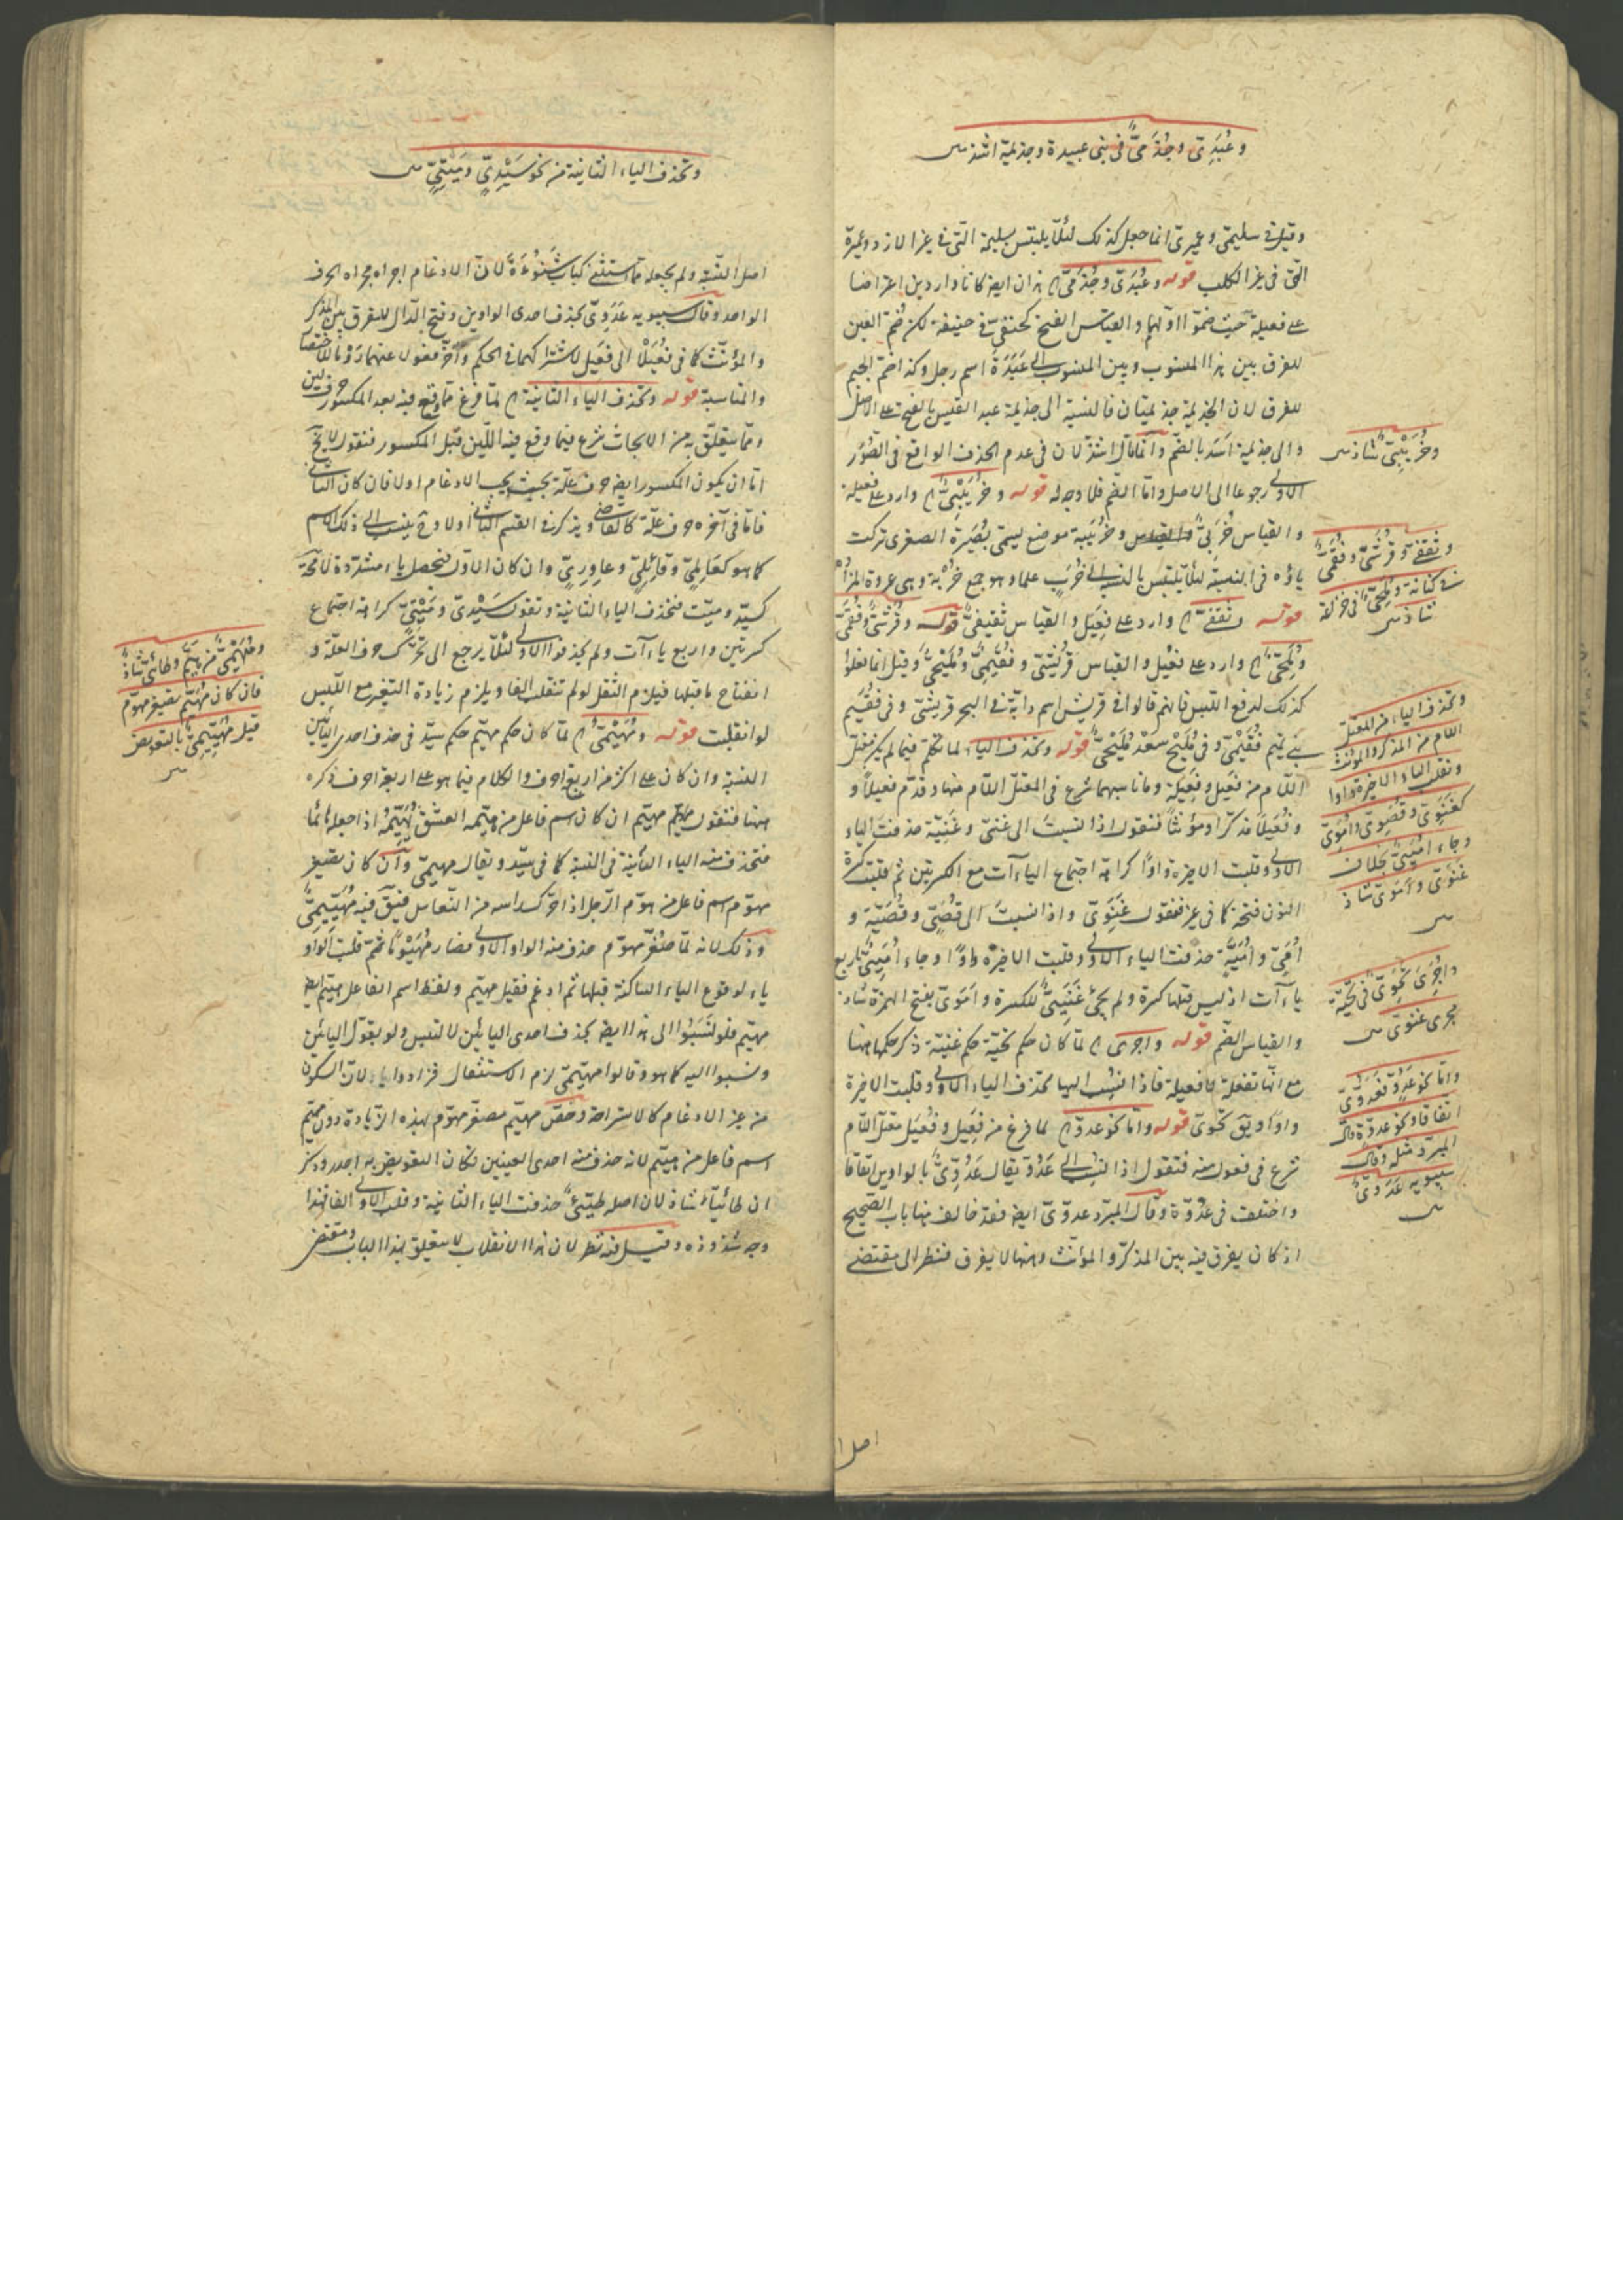 وعُبَدِىّ وجُذَمىّ فى بنى عبيدة وجذيمة اشذ
وقيل فى سليمىّ وعميرىّ انما جعل كذلك لئلا يلتبس بسليمة التى فى غير الازد وعميرة
التى فى غير الكلب قوله وعُبَدىّ وجُذَمىّ هذان ايضا كانا واردين اعتراضا
على فعيلة حيث ضموا اوّلهما والقياس الفتح كحنفىّ فى حنيفة لكن ضم العين
للفرق بين هذا المنسوب وبين المنسوب الى عَبَدَة اسم رجل وكذا ضم الجيم
للفرق لان الجذيمة جذيمتان فالنسبة الى جذيمة عبد القيس بالفتح على الاصل
والى جذيمة اسد بالضم وانما قال اشذ لان فى عدم الحذف الواقع فى الصور
الاولى رجوعا الى الاصل واما الضم فلا وجه له قوله وخُرَيْبىّ وارد على فعيلة
والقياس خُرَبىّ وخُرَيبة موضع يسمى بُصَيرة الصغرى تركت
ياؤه فى النسبة لئلا يلتبس بالنسب الى خُرَب علما وهو جمع خُرْبة وهى عروة المزادة
قوله وثقفىّ وارد على فعيل والقياس ثقيفىّ قوله وقُرَشىّ وفُقَمىّ
ومُلَحىّ وارد على فعيل والقياس قريشىّ وفُقَيمىّ ومُلَيحىّ وقيل انما فعلوا
كذلك لدفع اللبس فانهم قالوا فى قريش اسم دابة فى البحر قريشىّ وفى فُقَيم
بنى تميم فُقَيمىّ وفى مُلَيح سعد مُلَيحىّ قوله وتحذف الياء لما تكلم فيما لم يكن معتل
اللام من فعيل وفعيلة وما ناسبهما شرع فى المعتل اللام منها وقدم فعيلا و
وفُعَيلا مذكرا ومؤنثا فنقول اذا نسبت الى غنىّ وغنيّة حذفت الياء
الاولى وقلبت الاخيرة واوا كراهة اجتماع الياءآت مع الكسرتين ثم قلبت كسرة
النون فتحة كما فى نمر فتقول غَنَوىّ واذا نسبت الى قُصَىّ وقُصَيّة و
اُمَىّ واُمَيّة حذفت الياء الاولى وقلبت الاخيرة واوا وجاء اُمَيّىّ باربع
ياءآت اذ ليس قبلها كسرة ولم يجئ غَنَيّىّ للكسرة واَمَوىّ بفتح الهمزة شاذ
والقياس الضم قوله واجرى لما كان حكم تحيّة حكم غنيّة ذكر حكمها ههنا
مع انها تفعلة لا فعيلة فاذا نسب اليها تحذف الياء الاولى وقلبت الاخيرة
واوا ويق تحوىّ قوله واما نحو عدوّ لما فرغ من فعيل وفُعَيل معتل اللام
شرع فى فعول منه فتقول اذا نسب الى عدوّ يقال عدُوّىّ بالواوين اتفاقا
واختلف فى عدوّة وقال المبرد عدوّىّ ايضا فقد خالف هنا باب الصحيح
اذ كان يفرق فيه بين المذكر والمؤنث وههنا لا يفرق فنظر الى مقتضى
وخُرَيْبىّ شاذ
وثقفىّ وقُرَشىّ وفُقَمىّ
فى كنانة ومُلَحىّ فى خزاعة
شاذ
وتحذف الياء من المعتل
اللام من المذكر والمؤنث
وتقلب الياء الاخيرة واوا
كغَنَوىّ وقُصَوىّ واُمَوىّ
وجاء اُمَيّىّ بخلاف
غنوىّ واَمَوىّ شاذ
واُجرِىَ تحَوىّ فى تحيّة
مجرى غنوىّ
واما نحو عدوّ فعدوّىّ
اتفاقا ونحو عدوّة قال
المبرد مثله وقال
سيبويه عَدَوىّ
اصل ا
وتحذف الياء الثانية من نحو سَيّدىّ ومَيّتىّ
اصل النسبة ولم يجعله مما استثنى كباب شنوءة لان الادغام اجراه مجراه الحرف
الواحد وقال سيبويه عَدَوىّ بحذف احدى الواوين وفتح الدال للفرق بين المذكر
والمؤنث كما فى فعيل الى فعيل لاشتراكهما فى الحكم واخر فعول عنهما رَوْما للاختصار
والمناسبة قوله وتحذف الياء الثانية لما فرغ مما وقع فيه بعد المكسور حرف لين
ومما يتعلق به من الابحاث شرع فيما وقع فيه اللين قبل المكسور فنقول لا يخ
اما ان يكون المكسور ايضا حرف علة بحيث يجب الادغام او لا فان كان الثانى
فاما فى آخره حرف علة كالقاضى ويذكر فى القسم الثانى او لا وح ينسب الى ذلك الاسم
كما هو كعَالِمىّ وقائلىّ وعاورىّ وان كان الاول فتحصل ياء مشددة لا محة
كسيّد وميّت فتحذف الياء الثانية وتقول سَيْدىّ ومَيْتىّ كراهة اجتماع
كسرتين واربع ياءآت ولم يحذفوا الاولى لئلا يرجع الى تحرك حرف العلة و
انفتاح ما قبلها فيلزم الثقل لو لم تنقلب الفا ويلزم زيادة التغير مع اللبس
لو انقلبت قوله ومُهَيْمىّ لما كان حكم مهيّم حكم سيّد فى حذف احدى اليائين
النسبة وان كان على اكثر من اربعة احرف والكلام فيما هو على اربعة احرف ذكره
ههنا فنقول مهيّم ان كان اسم فاعل من هيّمه العشق يُهيّمه اذا جعله هائما
فتحذف منه الياء الثانية فى النسبة كما فى سيّد ويقال مهيمىّ وان كان تصغير
مهوّم اسم فاعل من هوّم الرجل اذا حرّك راسه من النعاس فيق فيه مُهَيّيمىّ
وذلك لانه لما صغّر مهوّم حذف منه الواو الاولى فصار مُهَيْوِما ثم قلبت الواو
ياء لوقوع الياء الساكنة قبلها ثم ادغم فقيل مهيّم ولفظ اسم الفاعل من هيّم ايضا
مهيّم فلو نسبوا الى هذا ايضا بحذف احدى اليائين لالتبس ولو بقول اليائين
ونسبوا اليه كما هو وقالوا مهيّمىّ لزم الاستثقال فزادوا ياء لان السكون
من غير الادغام كالاستراحة وخص مهيّم مصغر مهوّم بهذه الزيادة دون مهيّم
اسم فاعل من هيّم لانه حذف منه احدى العينين فكان التعويض به اجدر وذكر
ان طائيا شاذ لان اصله طيّئىّ حذفت الياء الثانية وقلبت الاولى الفا فهذا
وجه شذوذه وقيل فيه نظر لان هذا الانقلاب لا يتعلق بهذا الباب ومقتضى
ومُهَيْمىّ من هيّم وطائىّ شاذ
فان كان مهيّم تصغير مهوّم
قيل مُهَيّيمىّ بالتعويض